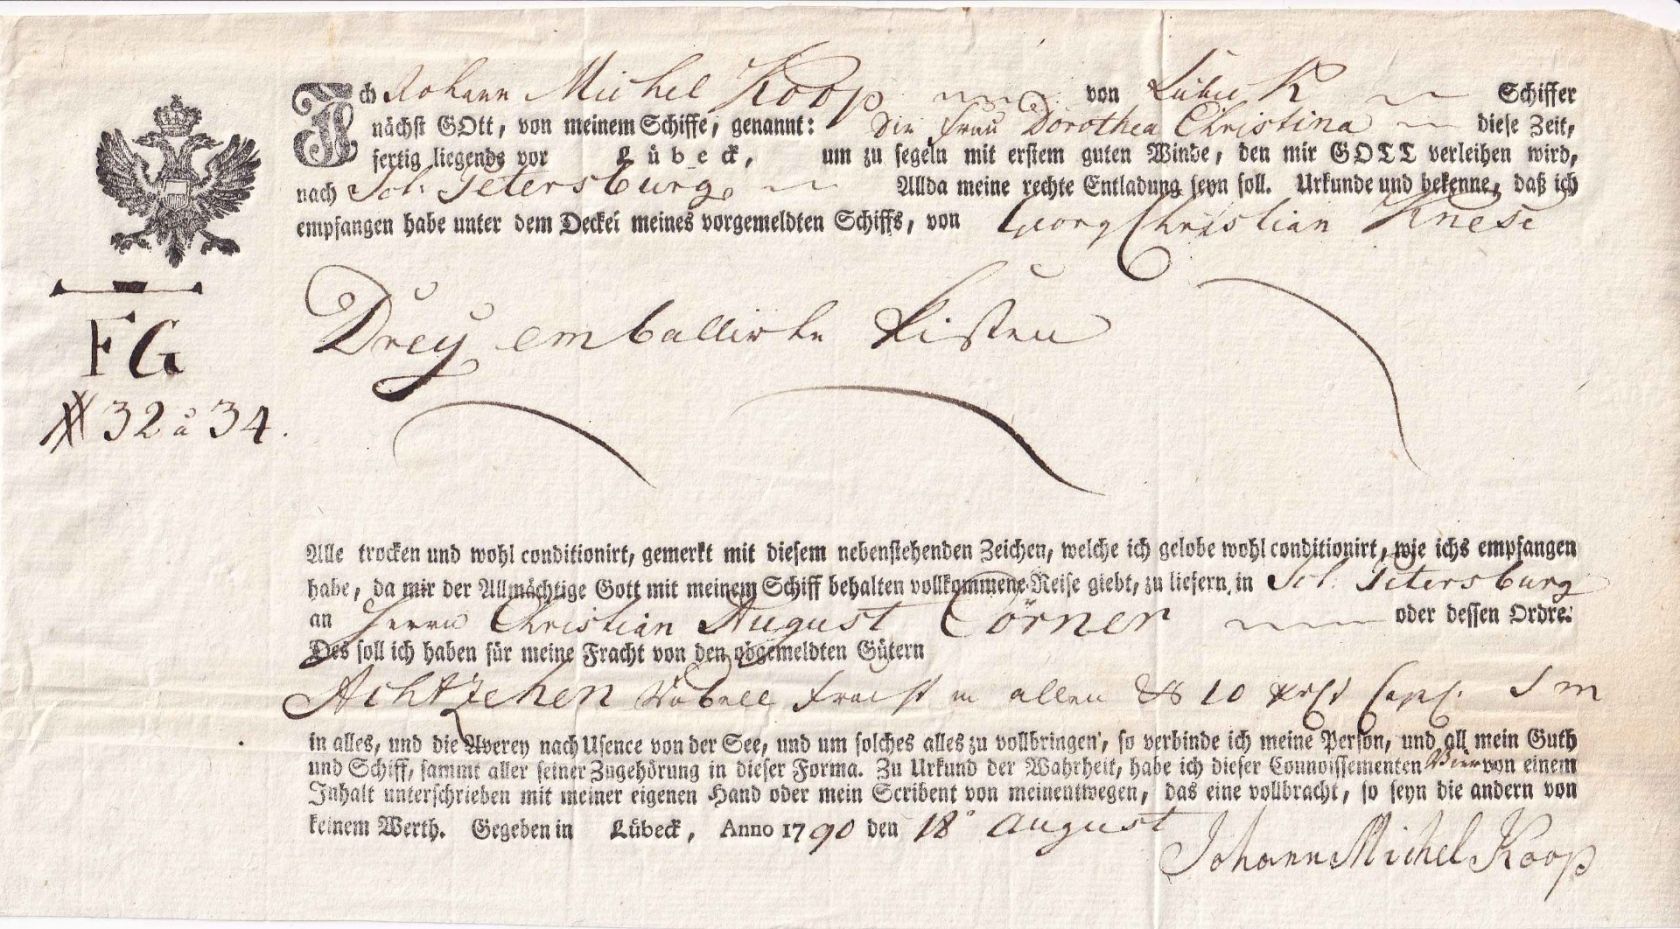 Ich Johann Michel Koop von Lübeck Schiffer
nächst GOtt, von meinem Schiffe, genannt: Die Frau Dorothea Christina diese Zeit,
fertig liegends vor Lübeck, um zu segeln mit erstem guten Winde, den mir GOTT verleihen wird,
nach Sct. Petersburg Allda meine rechte Entladung seyn soll. Urkunde und bekenne, daß ich
empfangen habe unter dem Deckel meines vorgemeldten Schiffs, von Georg Christian Knese
Drey emballirte Kisten
FG
# 32 a 34.
Alle trocken und wohl conditionirt, gemerkt mit diesem nebenstehenden Zeichen, welche ich gelobe wohl conditionirt, wie ichs empfangen
habe, da mir der Allmächtige Gott mit meinem Schiff behalten vollkommene Reise giebt, zu liefern in Sct. Petersburg
an Herrn Christian August Cörner oder dessen Ordre.
Des soll ich haben für meine Fracht von den obgemeldten Gütern
Achtzehen Rubell Fracht in allen & 10
in alles, und die Averey nach Usence von der See, und um solches alles zu vollbringen, so verbinde ich meine Person, und all mein Guth
und Schiff, sammt aller seiner Zugehörung in dieser Forma. Zu Urkund der Wahrheit, habe ich dieser Connoissementen Vier von einem
Inhalt unterschrieben mit meiner eigenen Hand oder mein Scribent von meinentwegen, das eine vollbracht, so seyn die andern von
keinem Werth. Gegeben in Lübeck, Anno 1790 den 18° August
Johann Michel Koop